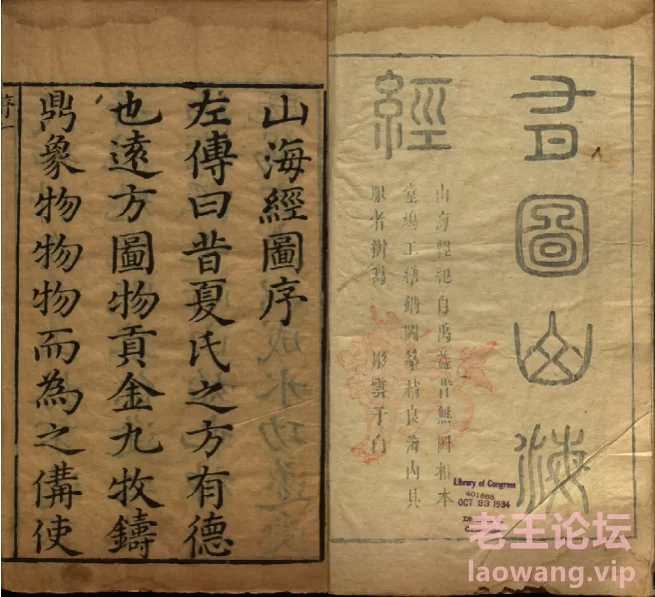 有圖山海
經
山海經紀自禹益昔無圖相本
堂鳩工繡圖良海內具
眼者辨焉 彤雲子白
Library of Congress
OCT 23 1934
山海經圖序
左傳曰昔夏氏之方有德
也遠方圖物貢金九牧鑄
鼎象物物物而為之備使
序一
老王论坛
laowang.vip